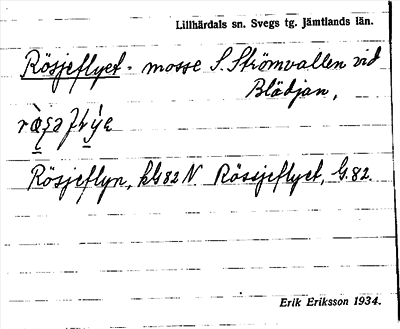 Lillhärdals sn. Svegs tg. Jämtlands län.
Rösjeflyet - mosse S. Strömvallen vid
Blädjan,
Rösjeflyn, kG82 N. Rössjeflyet, G.82.
Erik Eriksson 1934.